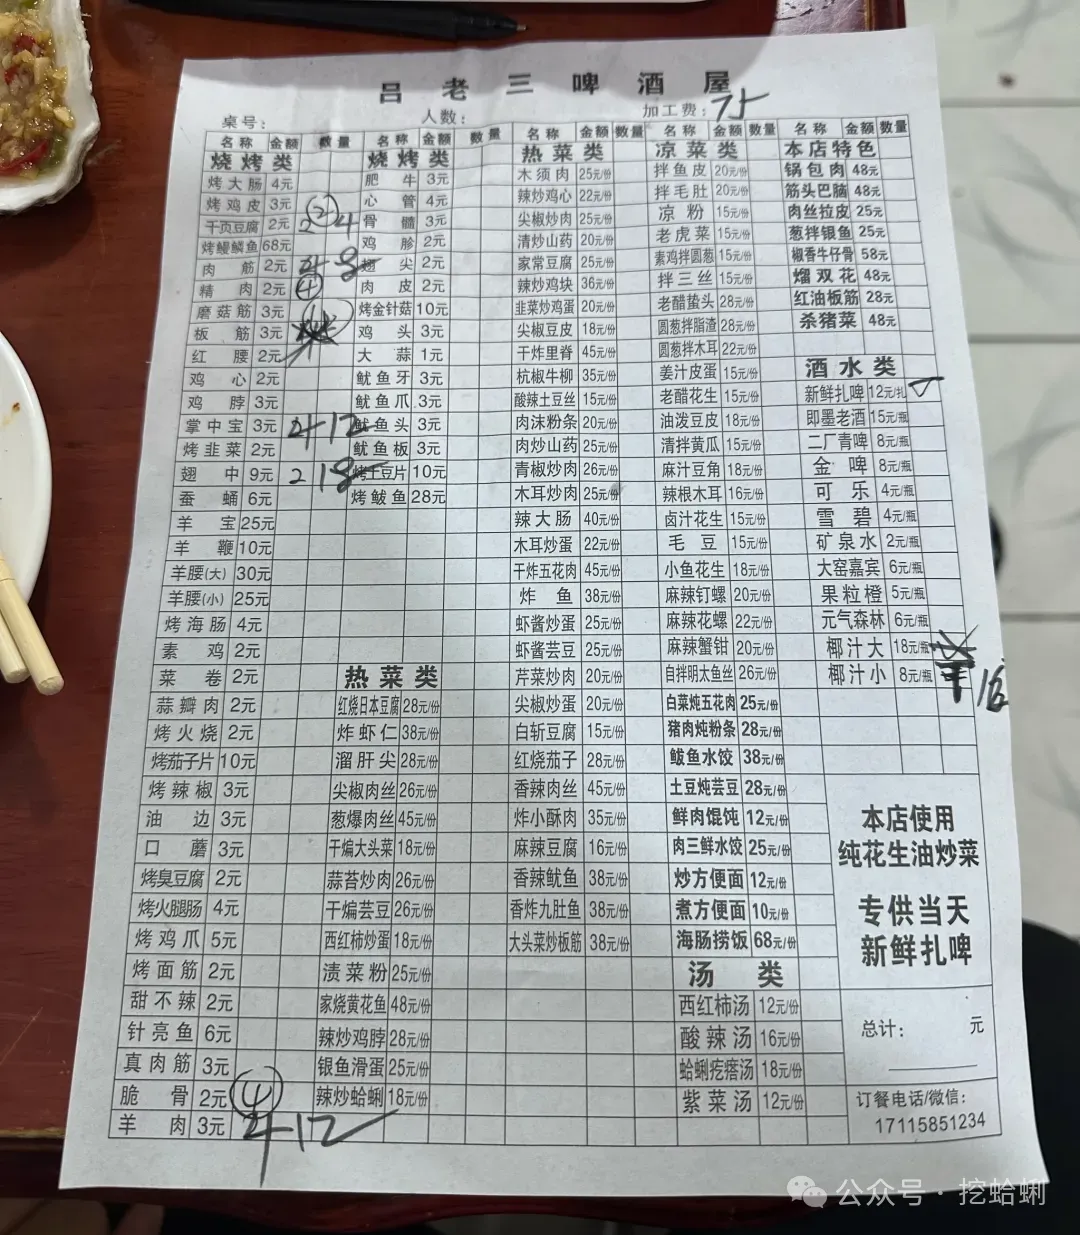 吕老三啤酒屋
桌号: 人数: 加工费: 75
名称 金额 数量 名称 金额 数量 名称 金额 数量 名称 金额 数量 名称 金额 数量
烧烤类 烧烤类 热菜类 凉菜类 本店特色
烤大肠 4元 肥牛 3元 木须肉 25元/份 拌鱼皮 20元/份 锅包肉 48元
烤鸡皮 3元 心管 4元 辣炒鸡心 22元/份 拌毛肚 20元/份 筋头巴脑 48元
干页豆腐 2元 2 ② 4 骨髓 3元 尖椒炒肉 25元/份 凉粉 15元/份 肉丝拉皮 25元
烤鳗鳞鱼 68元 鸡胗 2元 清炒山药 20元/份 老虎菜 15元/份 葱拌银鱼 25元
肉筋 2元 4 8 翅尖 2元 家常豆腐 25元/份 素鸡拌圆葱 15元/份 椒香牛仔骨 58元
精肉 2元 ④ 肉皮 2元 辣炒鸡块 36元/份 拌三丝 15元/份 熘双花 48元
磨菇筋 3元 烤金针菇 10元 韭菜炒鸡蛋 20元/份 老醋蛰头 28元/份 红油板筋 28元
板筋 3元 鸡头 3元 尖椒豆皮 18元/份 圆葱拌脂渣 28元/份 杀猪菜 48元
红腰 2元 大蒜 1元 干炸里脊 45元/份 圆葱拌木耳 22元/份
鸡心 2元 鱿鱼牙 3元 杭椒牛柳 35元/份 姜汁皮蛋 15元/份 酒水类
鸡脖 3元 鱿鱼爪 3元 酸辣土豆丝 15元/份 老醋花生 15元/份 新鲜扎啤 12元/扎
掌中宝 3元 4 12 鱿鱼头 3元 肉沫粉条 20元/份 油泼豆皮 18元/份 即墨老酒 15元/瓶
烤韭菜 2元 鱿鱼板 3元 肉炒山药 25元/份 清拌黄瓜 15元/份 二厂青啤 8元/瓶
翅中 9元 2 18 烤土豆片 10元 青椒炒肉 26元/份 麻汁豆角 18元/份 金啤 8元/瓶
蚕蛹 6元 烤鲅鱼 28元 木耳炒肉 25元/份 辣根木耳 16元/份 可乐 4元/瓶
羊宝 25元 辣大肠 40元/份 卤汁花生 15元/份 雪碧 4元/瓶
羊鞭 10元 木耳炒蛋 22元/份 毛豆 15元/份 矿泉水 2元/瓶
羊腰(大) 30元 干炸五花肉 45元/份 小鱼花生 18元/份 大窑嘉宾 6元/瓶
羊腰(小) 25元 炸鱼 38元/份 麻辣钉螺 20元/份 果粒橙 5元/瓶
烤海肠 4元 虾酱炒蛋 25元/份 麻辣花螺 22元/份 元气森林 6元/瓶
素鸡 2元 虾酱芸豆 25元/份 麻辣蟹钳 20元/份 椰汁大 18元/瓶
菜卷 2元 热菜类 芹菜炒肉 20元/份 自拌明太鱼丝 26元/份 椰汁小 8元/瓶 16
蒜瓣肉 2元 红烧日本豆腐 28元/份 尖椒炒蛋 20元/份 白菜炖五花肉 25元/份
烤火烧 2元 炸虾仁 38元/份 白斩豆腐 15元/份 猪肉炖粉条 28元/份
烤茄子片 10元 溜肝尖 28元/份 红烧茄子 28元/份 鲅鱼水饺 38元/份
烤辣椒 3元 尖椒肉丝 26元/份 香辣肉丝 45元/份 土豆炖芸豆 28元/份
油边 3元 葱爆肉丝 45元/份 炸小酥肉 35元/份 鲜肉馄饨 12元/份 本店使用
口蘑 3元 干煸大头菜 18元/份 麻辣豆腐 16元/份 肉三鲜水饺 25元/份 纯花生油炒菜
烤臭豆腐 2元 蒜苔炒肉 26元/份 香辣鱿鱼 38元/份 炒方便面 12元/份
烤火腿肠 4元 干煸芸豆 26元/份 香炸九肚鱼 38元/份 煮方便面 10元/份 专供当天
烤鸡爪 5元 西红柿炒蛋 18元/份 大头菜炒板筋 38元/份 海肠捞饭 68元/份 新鲜扎啤
烤面筋 2元 渍菜粉 25元/份 汤类
甜不辣 2元 家烧黄花鱼 48元/份 西红柿汤 12元/份
针亮鱼 6元 辣炒鸡脖 28元/份 酸辣汤 16元/份 总计: 元
真肉筋 3元 银鱼滑蛋 25元/份 蛤蜊疙瘩汤 18元/份
脆骨 2元 ④ 辣炒蛤蜊 18元/份 紫菜汤 12元/份 订餐电话/微信:
羊肉 3元 4 12 17115851234
公众号 · 挖蛤蜊